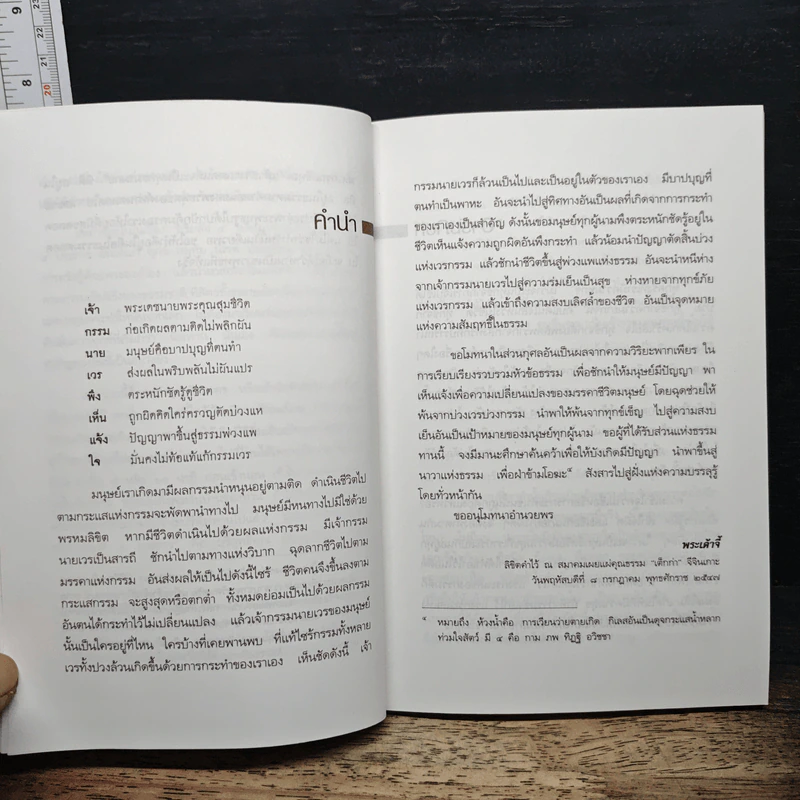 9
8
21
20
คำนำ
เจ้า พระเดชนายพระคุณสุมชีวิต
กรรม ก่อเกิดผลตามติดไม่พลิกผัน
นาย มนุษย์คือบาปบุญที่ตนทำ
เวร ส่งผลในพริบพลันไม่ผันแปร
พึง ตระหนักชัดรู้ดูชีวิต
เห็น ถูกผิดคิดใคร่ครวญตัดบ่วงแห
แจ้ง ปัญญาพาขึ้นสู่ธรรมพ่วงแพ
ใจ มั่นคงไม่ท้อแท้แก้กรรมเวร
มนุษย์เราเกิดมามีผลกรรมนำหนุนอยู่ตามติด ดำเนินชีวิตไป
ตามกระแสแห่งกรรมจะพัดพานำทางไป มนุษย์มีหนทางไปมิใช่ด้วย
พรหมลิขิต หากมีชีวิตดำเนินไปด้วยผลแห่งกรรม มีเจ้ากรรม
นายเวรเป็นสารถี ชักนำไปตามทางแห่งวิบาก ฉุดลากชีวิตไปตาม
มรรคาแห่งกรรม อันส่งผลให้เป็นไปดังนี้ไซร้ ชีวิตคนจึงขึ้นลงตาม
กระแสกรรม จะสูงสุดหรือตกต่ำ ทั้งหมดย่อมเป็นไปด้วยผลกรรม
อันตนได้กระทำไว้ไม่เปลี่ยนแปลง แล้วเจ้ากรรมนายเวรของมนุษย์
นั้นเป็นใครอยู่ที่ไหน ใครบ้างที่เคยพานพบ ที่แท้ไซร้กรรมทั้งหลาย
เวรทั้งปวงล้วนเกิดขึ้นด้วยการกระทำของเราเอง เห็นชัดดังนี้ เจ้า
กรรมนายเวรก็ล้วนเป็นไปและเป็นอยู่ในตัวของเราเอง มีบาปบุญที่
ตนทำเป็นพาหะ อันจะนำไปสู่ทิศทางอันเป็นผลที่เกิดจากการกระทำ
ของเราเองเป็นสำคัญ ดังนั้นขอมนุษย์ทุกผู้นามพึงตระหนักชัดรู้อยู่ใน
ชีวิตเห็นแจ้งความถูกผิดอันพึงกระทำ แล้วน้อมนำปัญญาตัดสิ้นบ่วง
แห่งเวรกรรม แล้วชักนำชีวิตขึ้นสู่พ่วงแพแห่งธรรม อันจะนำหนีห่าง
จากเจ้ากรรมนายเวรไปสู่ความร่มเย็นเป็นสุข ห่างหายจากทุกข์ภัย
แห่งเวรกรรม แล้วเข้าถึงความสงบเลิศล้ำของชีวิต อันเป็นจุดหมาย
แห่งความสัมฤทธิ์ในธรรม
ขอโมทนาในส่วนกุศลอันเป็นผลจากความวิริยะพากเพียร ใน
การเรียบเรียงรวบรวมหัวข้อธรรม เพื่อชักนำให้มนุษย์มีปัญญา พา
เห็นแจ้งเพื่อความเปลี่ยนแปลงของมรรคาชีวิตมนุษย์ โดยฉุดช่วยให้
พ้นจากบ่วงเวรบ่วงกรรม นำพาให้พ้นจากทุกข์เข็ญ ไปสู่ความสงบ
เย็นอันเป็นเป้าหมายของมนุษย์ทุกผู้นาม ขอผู้ที่ได้รับส่วนแห่งธรรม
ทานนี้ จงมีมานะศึกษาค้นคว้าเพื่อให้บังเกิดมีปัญญา นำพาขึ้นสู่
นาวาแห่งธรรม เพื่อฝ่าข้ามโอฆะ* สังสารไปสู่ฝั่งแห่งความบรรลุรู้
โดยทั่วหน้ากัน
ขออนุโมทนาอำนวยพร
พระเต้าจี้
ลิขิตคำไว้ ณ สมาคมเผยแผ่คุณธรรม "เต็กก่า" จีจินเกาะ
วันพฤหัสบดีที่ ๘ กรกฎาคม พุทธศักราช ๒๕๔๗
* หมายถึง ห้วงน้ำคือ การเวียนว่ายตายเกิด กิเลสอันเป็นดุจกระแสน้ำหลาก
ท่วมใจสัตว์ มี ๔ คือ กาม ภพ ทิฏฐิ อวิชชา